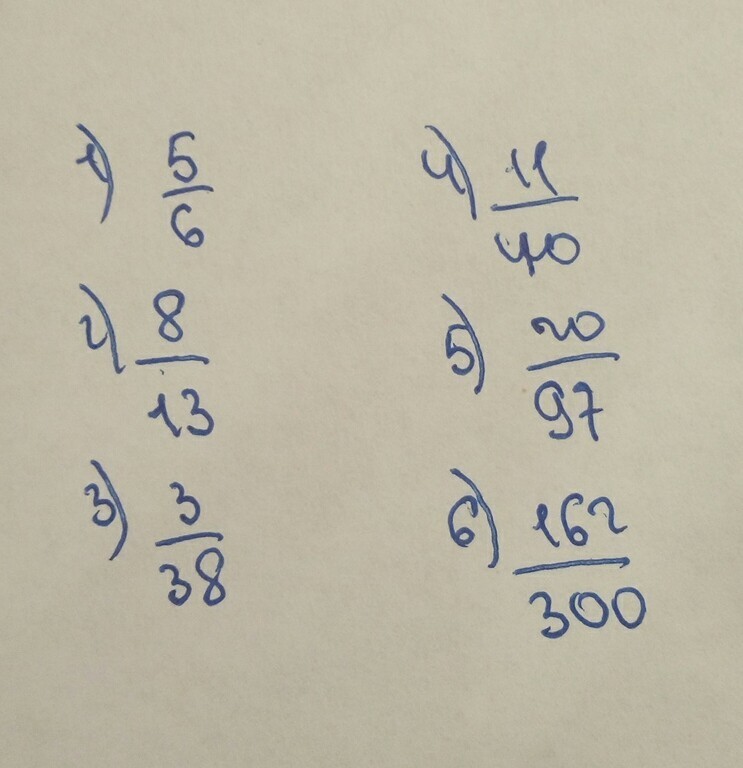 1) 5/6
2) 8/13
3) 3/38
4) 11/40
5) 20/97
6) 162/300